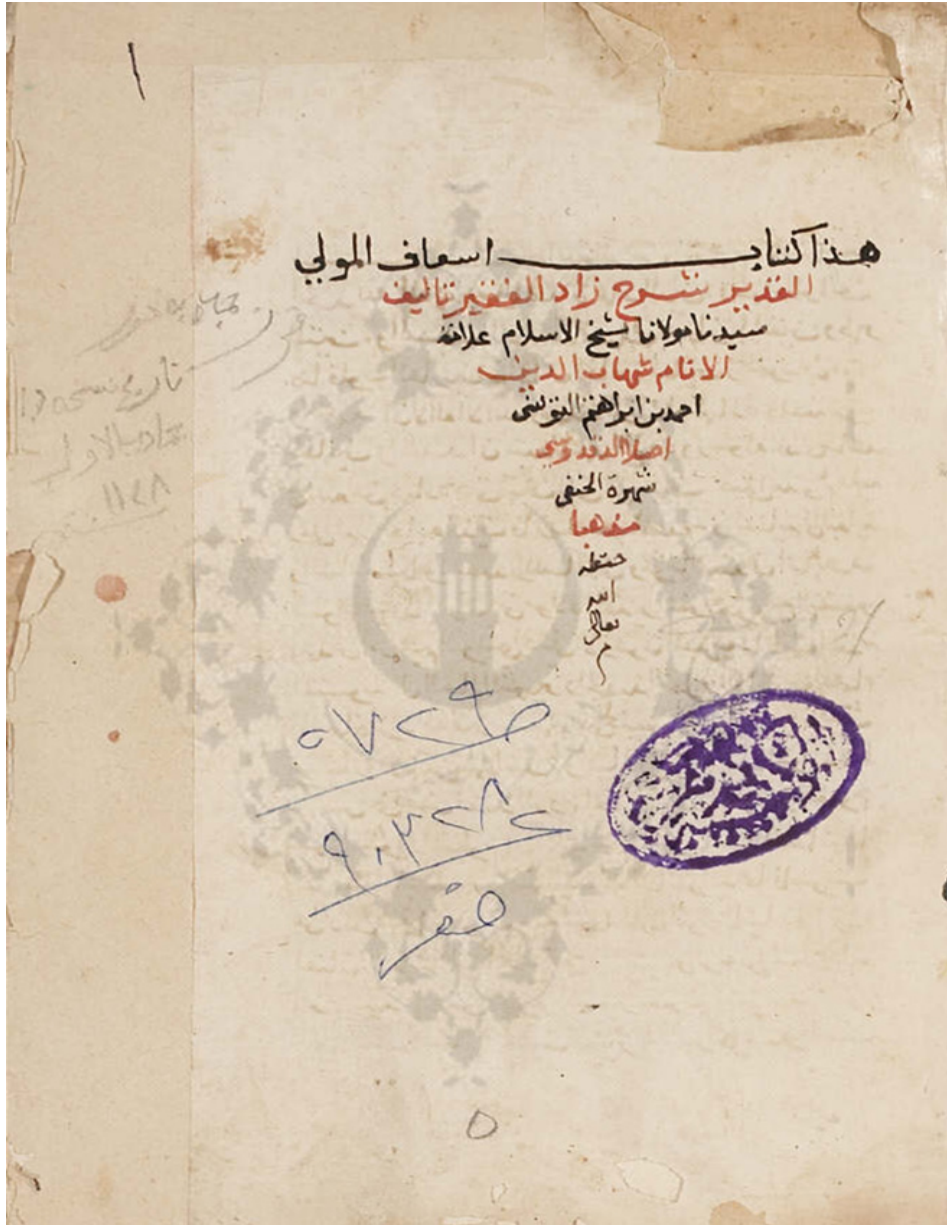 ١
هذا كتاب اسعاف المولي
القدير بشرح زاد الفقير تاليف
سيدنا مولانا شيخ الاسلام علامة
الانام شهاب الدين
احمد بن ابراهيم التونسي
اصلا الدقدوسي
شهرة الحنفي
مذهبا
حفظه
الله
تعالى
م
تاريخ نسخه
جماد الاولى
١١٤٨
٩٠٣٢٨
٥